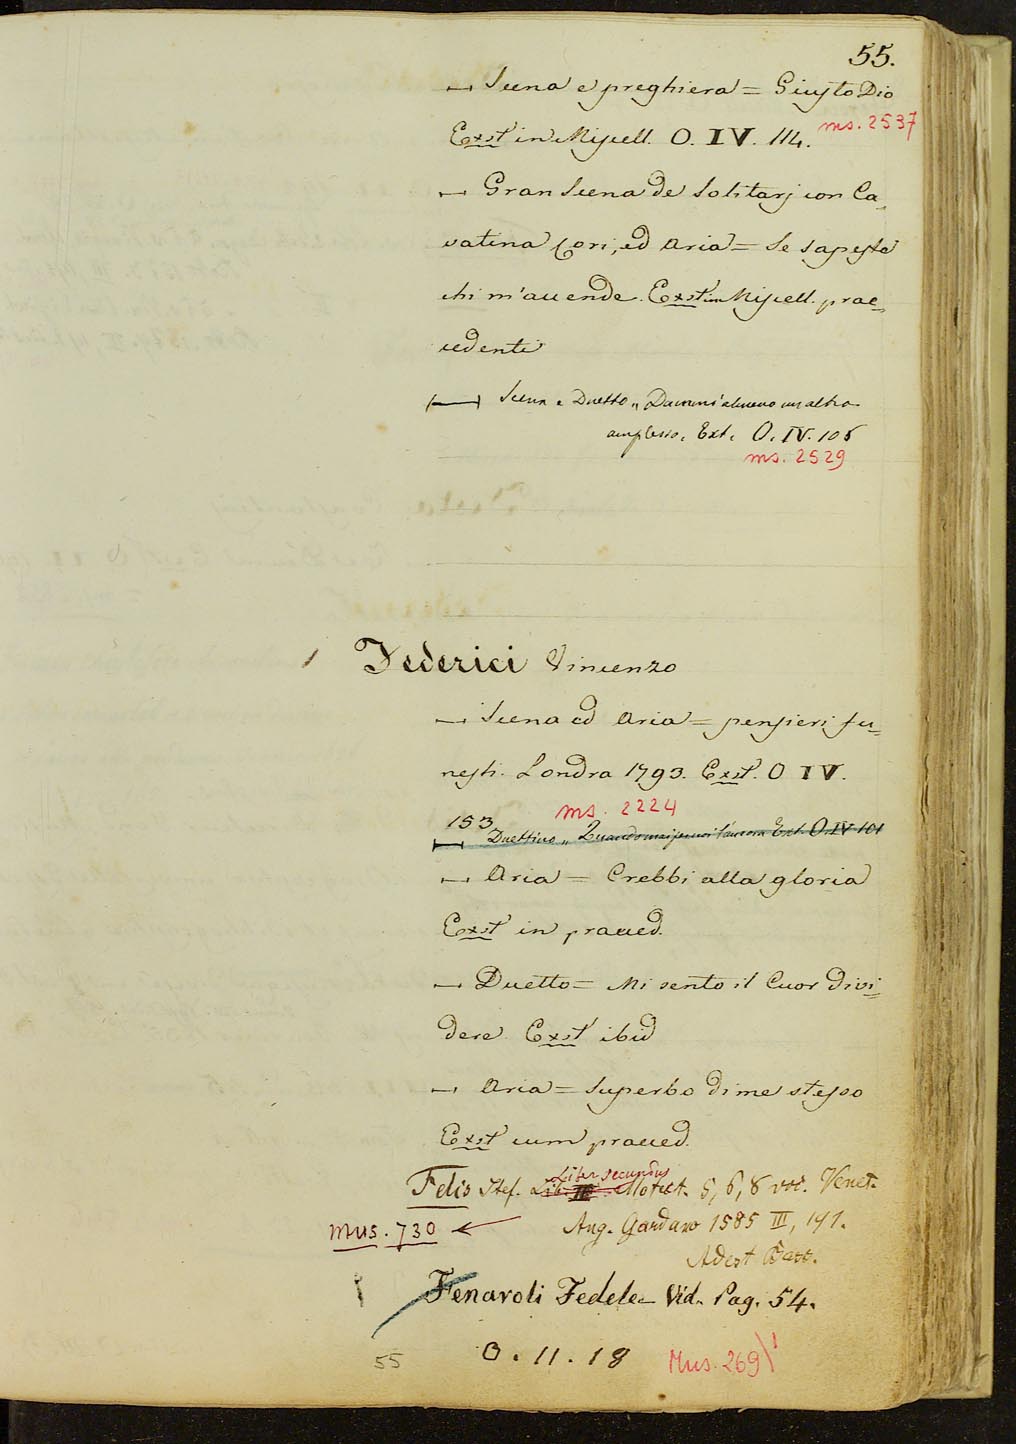 55.
— Scena e preghiera = Giusto Dio
Exst in Miscell. O. IV. 114.
ms. 2537
— Gran Scena de Solitarj con Ca-
vatina Cori, ed Aria = Se sapeste
chi m'accende. Exst in Miscell. prae-
cedenti
— Scena e Duetto „ Dammi almeno un altro
amplesso. Ext. O. IV. 106
ms. 2529
Federici Vincenzo
— Scena ed Aria = pensieri fu-
nesti. Londra 1793. Exst. O IV.
153 ms. 2224
— Duettino „ Quando mai Ext. O. IV 101
— Aria = Crebbi alla gloria
Exst in praeced.
— Duetto = Mi sento il Cuor divi-
dere Exst ibid
— Aria = Superbo di me stesso
Exst cum praeced.
Liber secundus
Felis Stef. Lib. III Motect. 5, 6, 8 voc. Venet.
mus. 730 Ang. Gardano 1585 III, 141.
Adest Bass.
Fenaroli Fedele Vid. Pag. 54.
55 O. 11. 18 Mus. 269